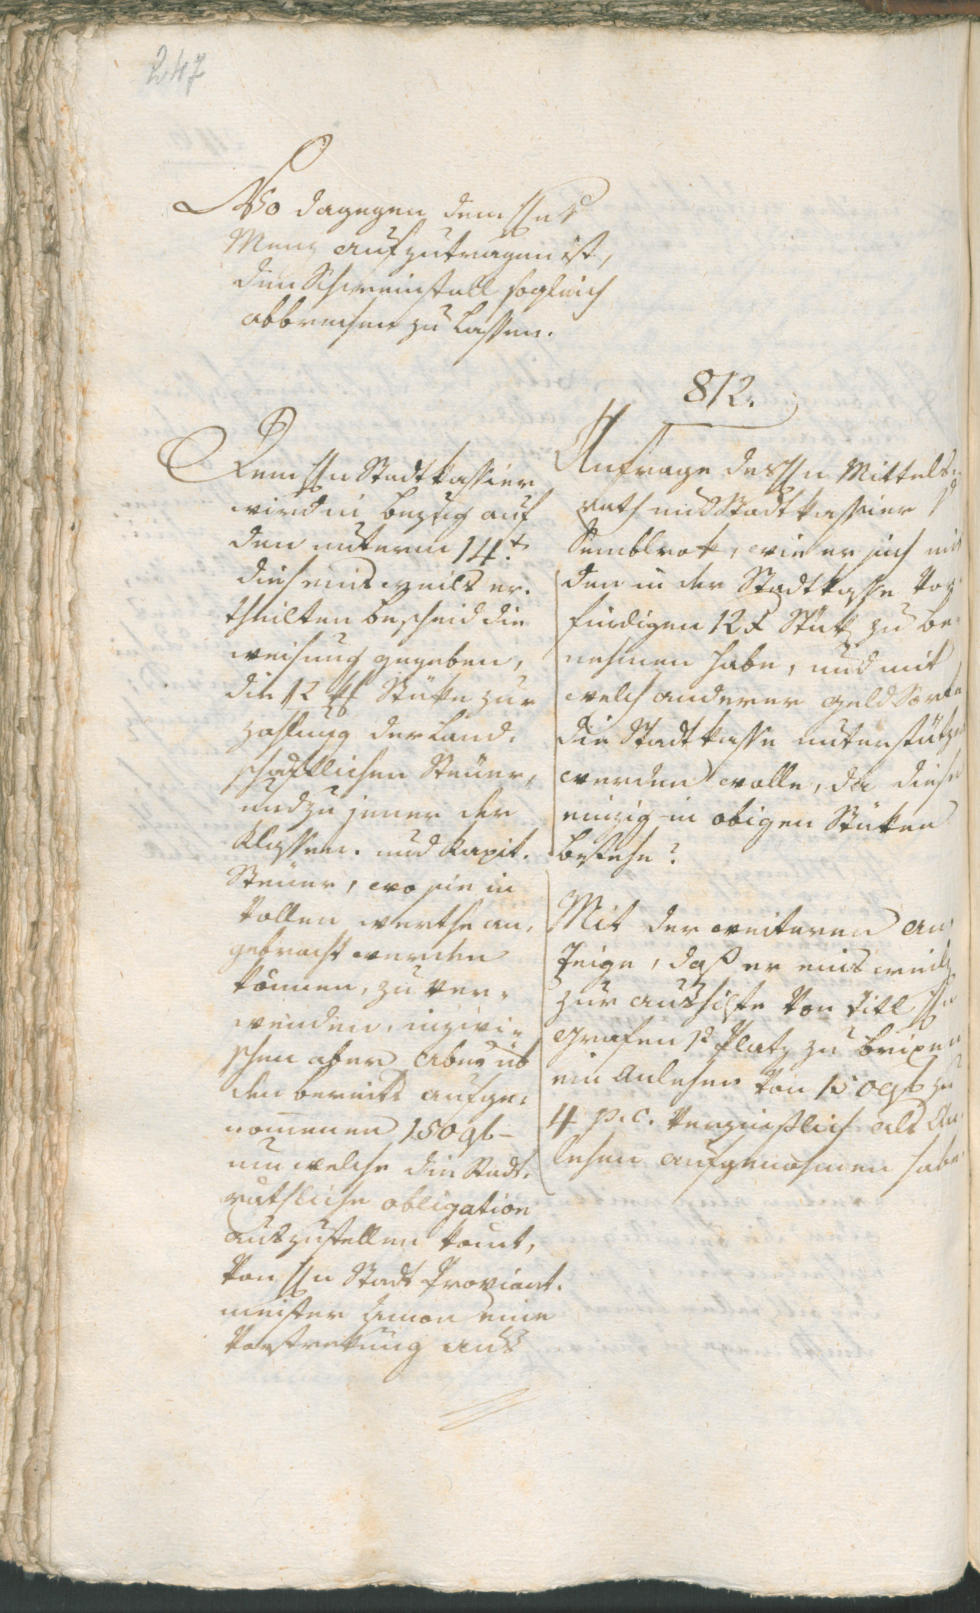 247
Wo dagegen dem Hn
Menz aufzutragen ist,
den Schweinstall sogleich
abbrechen zu lassen.
812.
Dem Hn Stadtkassier
wird in bezug auf
den unterm 14.t
dies einsweils er-
theilten bescheid die
weisung gegeben,
die 12 Stüke zur
zahlung der Land-
schaftlichen Steuer,
und zu jener der
Klassen- und Kapit.
Steuer, wo sie in
vollen werthe an-
gebracht werden
können, zu ver-
wenden, inzwi-
schen aber über
den bereits aufge-
nomenen 150 gl –
um welche die Stadt-
räthliche obligation
auszustellen komt,
von Hn Stadt Proviant-
meister eine
Vorstrekung aus
Anfrage des Hn Mittels-
rath und Stadtkassier
Semblrok, wie er sich mit
den in der Stadtkasse vor-
findigen 12 Stük zu be-
nehmen habe, und mit
welch anderer geld Sorte
die Stadtkasse unterstützt
werden wolle, da diese
einzig in obigen Stüken
bestehe?
Mit der weiteren An-
zeige, daß er einsweils
zur aushilfe von Titl Hn
Grafen Platz zu brixen
ein Anlehen von 150 gl zu
4 p.c. verzinslich als An-
lehen aufgenohmen habe.